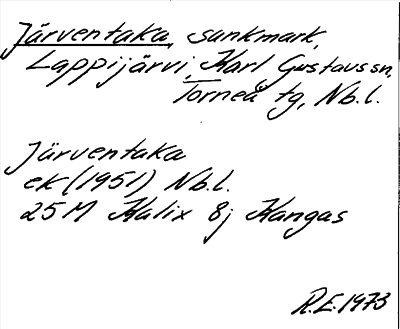 Järventaka, sankmark,
Lappijärvi, Karl Gustavs sn,
Torneå tg, Nb.l.
Järventaka
ek (1951) Nb.l.
25M Kalix 8j Kangas
R.E. 1973